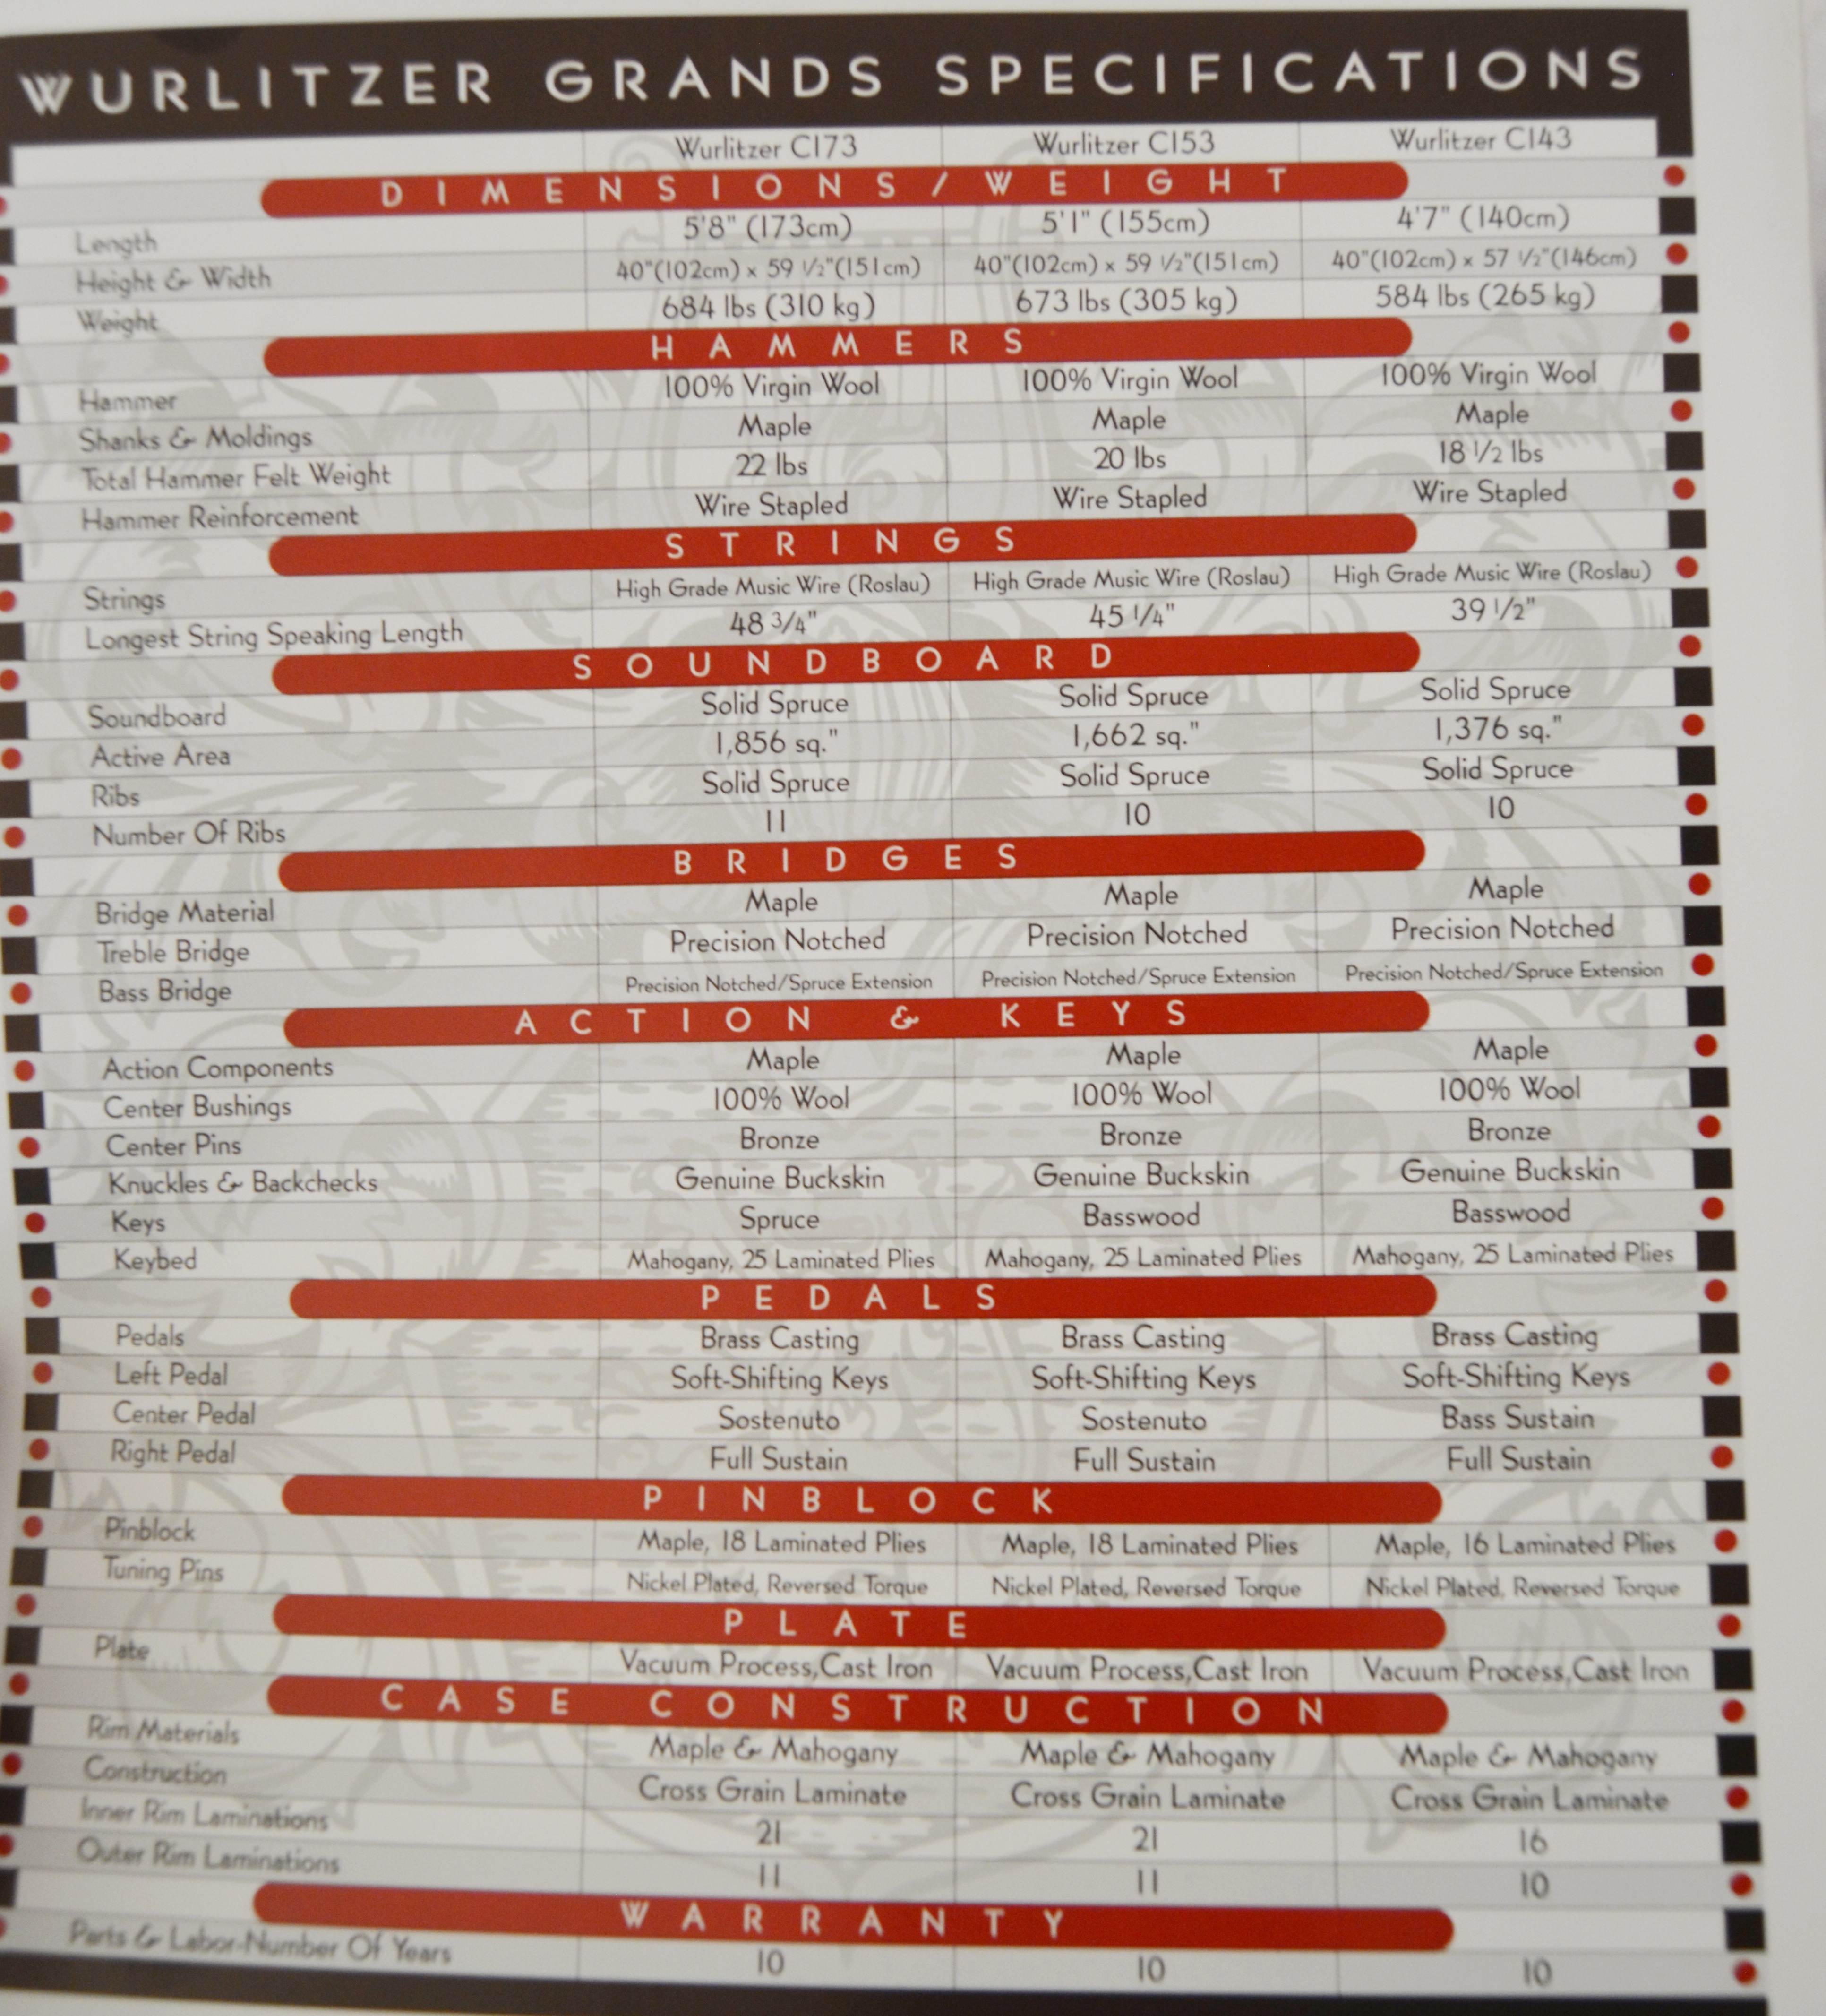 WURLITZER GRANDS SPECIFICATIONS
Wurlitzer C173 Wurlitzer C153 Wurlitzer C143
DIMENSIONS/WEIGHT
Length 5'8" (173cm) 5'1" (155cm) 4'7" (140cm)
Height & Width 40"(102cm) x 59 1/2"(151cm) 40"(102cm) x 59 1/2"(151cm) 40"(102cm) x 57 1/2"(146cm)
Weight 684 lbs (310 kg) 673 lbs (305 kg) 584 lbs (265 kg)
HAMMERS
Hammer 100% Virgin Wool 100% Virgin Wool 100% Virgin Wool
Shanks & Moldings Maple Maple Maple
Total Hammer Felt Weight 22 lbs 20 lbs 18 1/2 lbs
Hammer Reinforcement Wire Stapled Wire Stapled Wire Stapled
STRINGS
Strings High Grade Music Wire (Roslau) High Grade Music Wire (Roslau) High Grade Music Wire (Roslau)
Longest String Speaking Length 48 3/4" 45 1/4" 39 1/2"
SOUNDBOARD
Soundboard Solid Spruce Solid Spruce Solid Spruce
Active Area 1,856 sq." 1,662 sq." 1,376 sq."
Ribs Solid Spruce Solid Spruce Solid Spruce
Number Of Ribs 11 10 10
BRIDGES
Bridge Material Maple Maple Maple
Treble Bridge Precision Notched Precision Notched Precision Notched
Bass Bridge Precision Notched/Spruce Extension Precision Notched/Spruce Extension Precision Notched/Spruce Extension
ACTION & KEYS
Action Components Maple Maple Maple
Center Bushings 100% Wool 100% Wool 100% Wool
Center Pins Bronze Bronze Bronze
Knuckles & Backchecks Genuine Buckskin Genuine Buckskin Genuine Buckskin
Keys Spruce Basswood Basswood
Keybed Mahogany, 25 Laminated Plies Mahogany, 25 Laminated Plies Mahogany, 25 Laminated Plies
PEDALS
Pedals Brass Casting Brass Casting Brass Casting
Left Pedal Soft-Shifting Keys Soft-Shifting Keys Soft-Shifting Keys
Center Pedal Sostenuto Sostenuto Bass Sustain
Right Pedal Full Sustain Full Sustain Full Sustain
PINBLOCK
Pinblock Maple, 18 Laminated Plies Maple, 18 Laminated Plies Maple, 16 Laminated Plies
Tuning Pins Nickel Plated, Reversed Torque Nickel Plated, Reversed Torque Nickel Plated, Reversed Torque
PLATE
Plate Vacuum Process,Cast Iron Vacuum Process,Cast Iron Vacuum Process,Cast Iron
CASE CONSTRUCTION
Rim Materials Maple & Mahogany Maple & Mahogany Maple & Mahogany
Construction Cross Grain Laminate Cross Grain Laminate Cross Grain Laminate
Inner Rim Laminations 21 21 16
Outer Rim Laminations 11 11 10
WARRANTY
Parts & Labor-Number Of Years 10 10 10